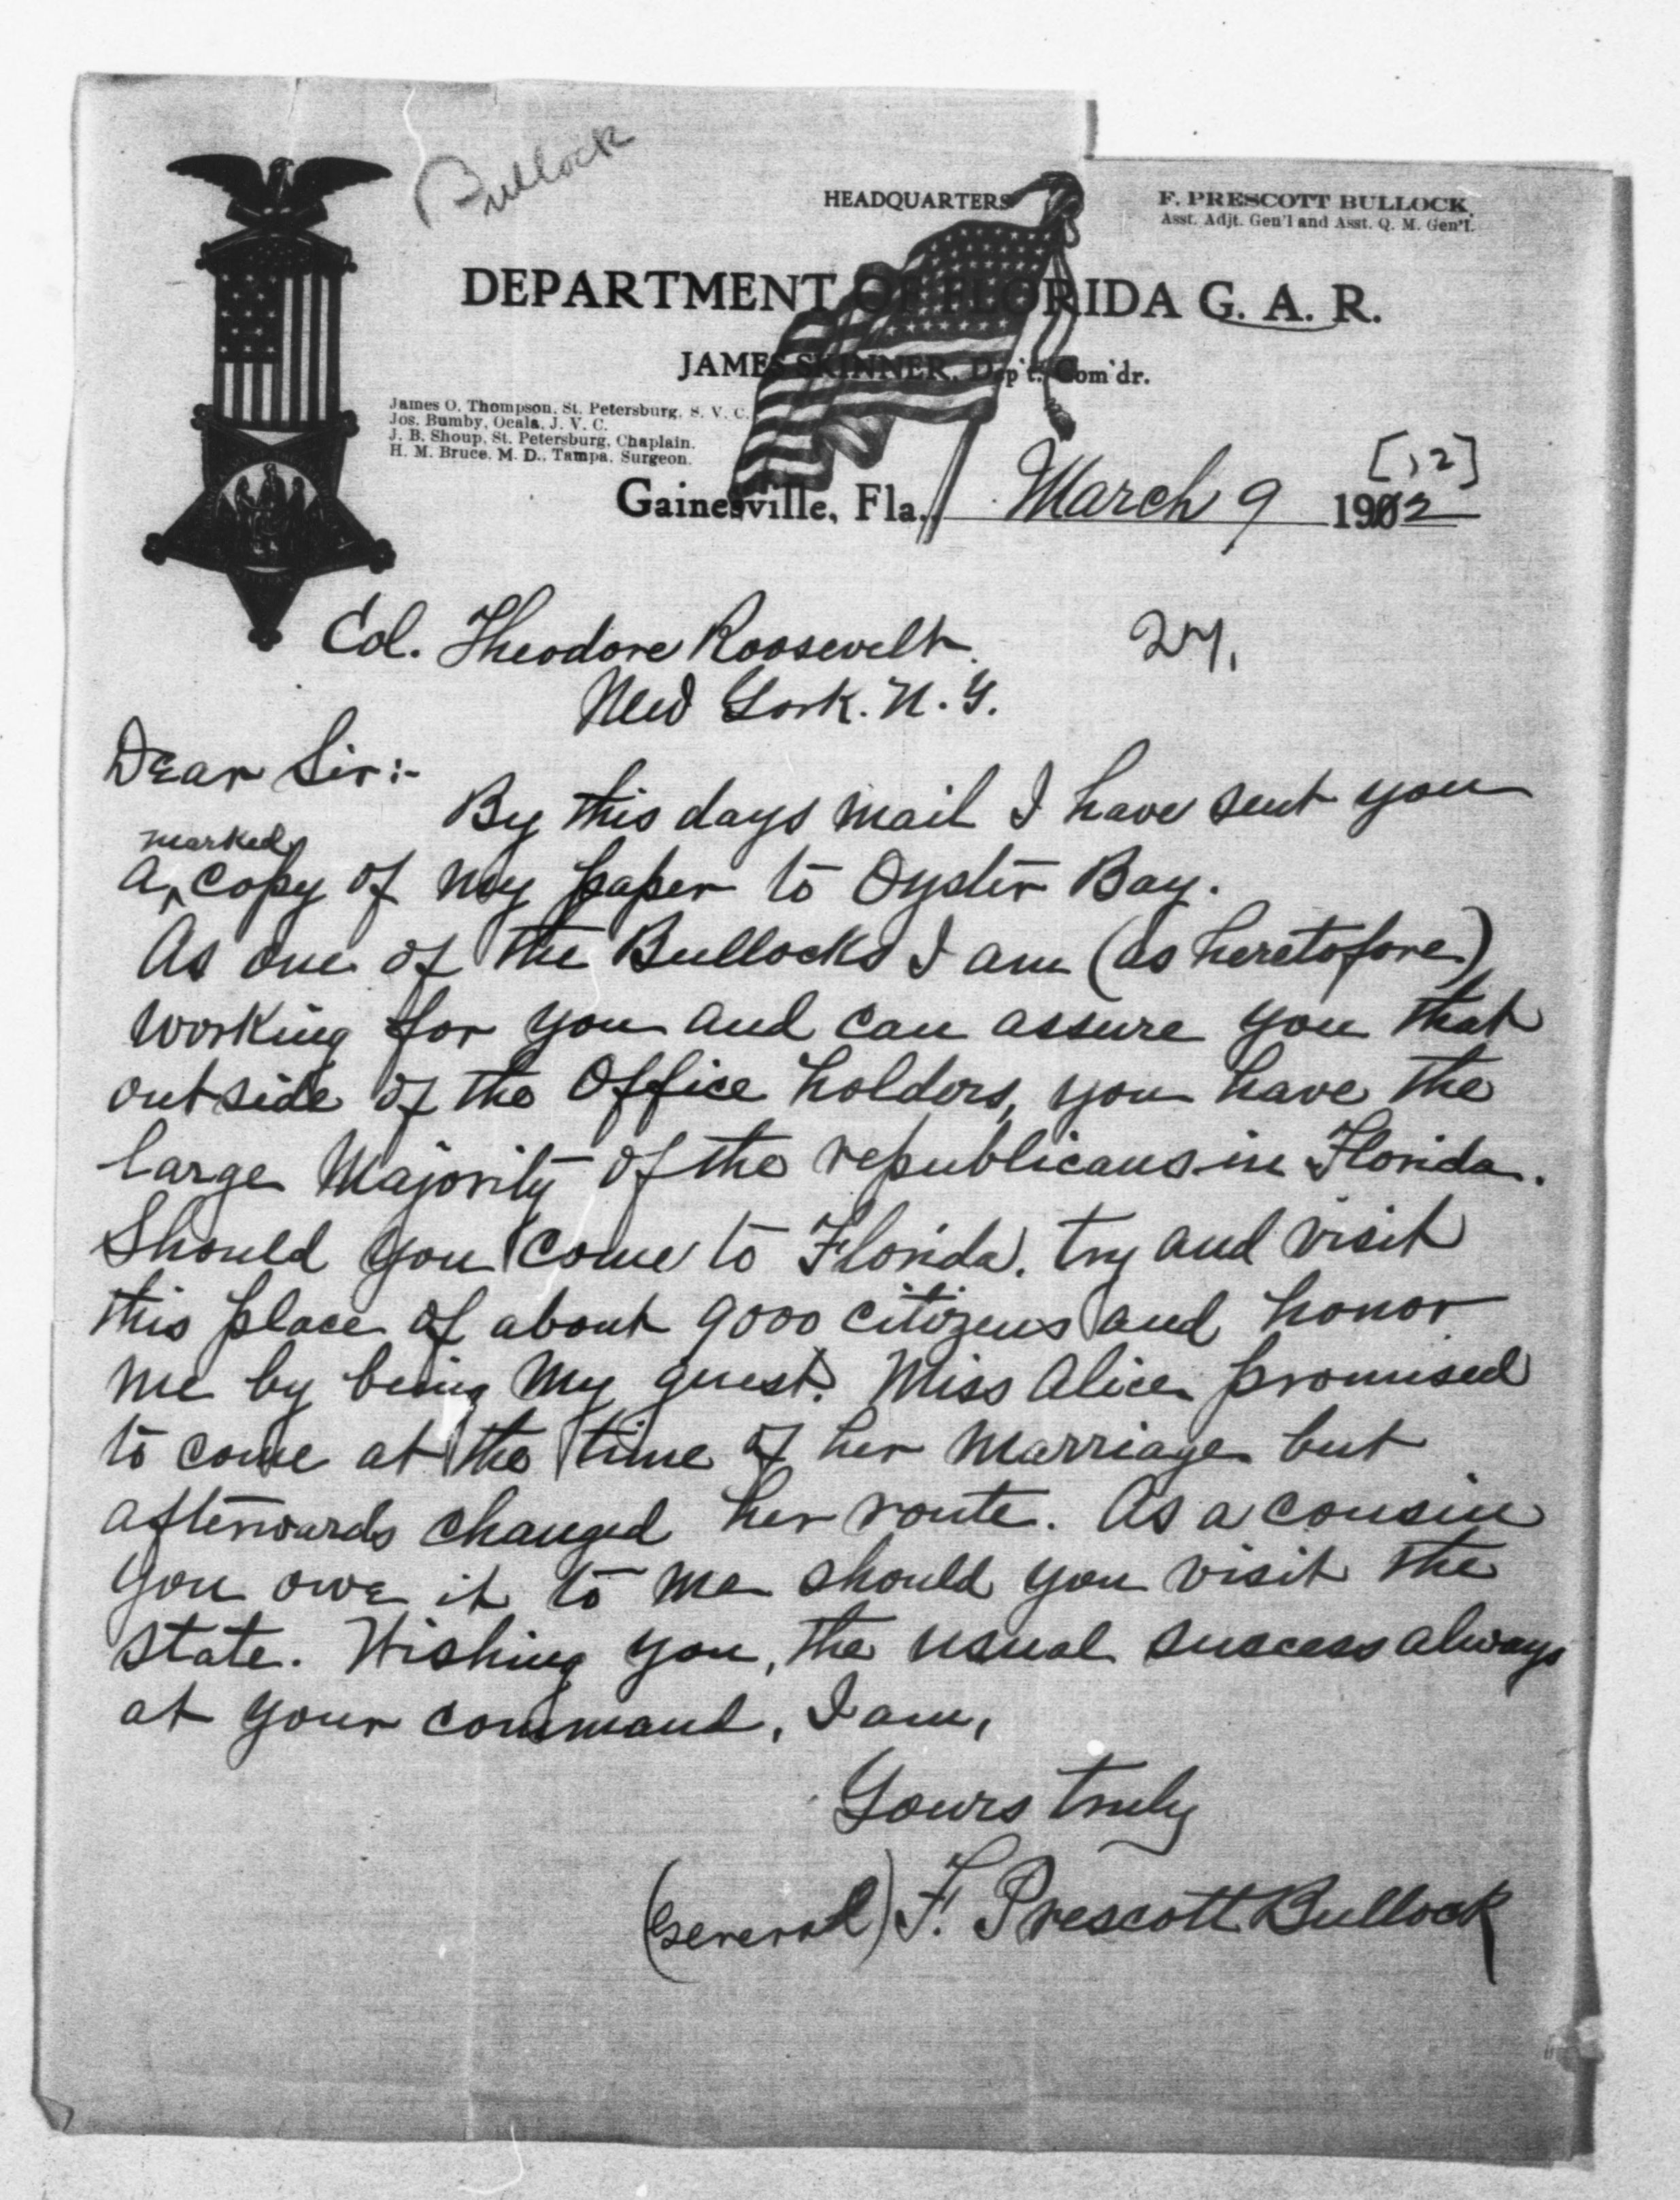 Bullock
HEADQUARTERS
F. PRESCOTT BULLOCK,
Asst. Adjt. Gen'l and Asst. Q. M. Gen'l.
DEPARTMENT OF FLORIDA G. A. R.
JAMES SKINNER, Dep't. Com'dr.
James O. Thompson, St. Petersburg, S. V. C.
Jos. Bumby, Ocala, J. V. C.
J. B. Shoup, St. Petersburg, Chaplain.
H. M. Bruce, M. D., Tampa, Surgeon.
[12]
Gainesville, Fla., March 9 1902
Col. Theodore Roosevelt.
New York. N. Y.
Dear Sir:-
By this days mail I have sent you
marked
a ^ copy of my paper to Oyster Bay.
As one of the Bullocks I am (as heretofore)
working for you and can assure you that
outside of the Office holders, you have the
large Majority of the republicans in Florida.
Should you come to Florida. try and visit
this place of about 9000 citizens and honor
me by being my guest. Miss Alice promised
to come at the time of her marriage but
afterwards changed her route. As a cousin
you owe it to me should you visit the
State. Wishing you, the usual success always
at your command, I am,
Yours truly
(General) F. Prescott Bullock